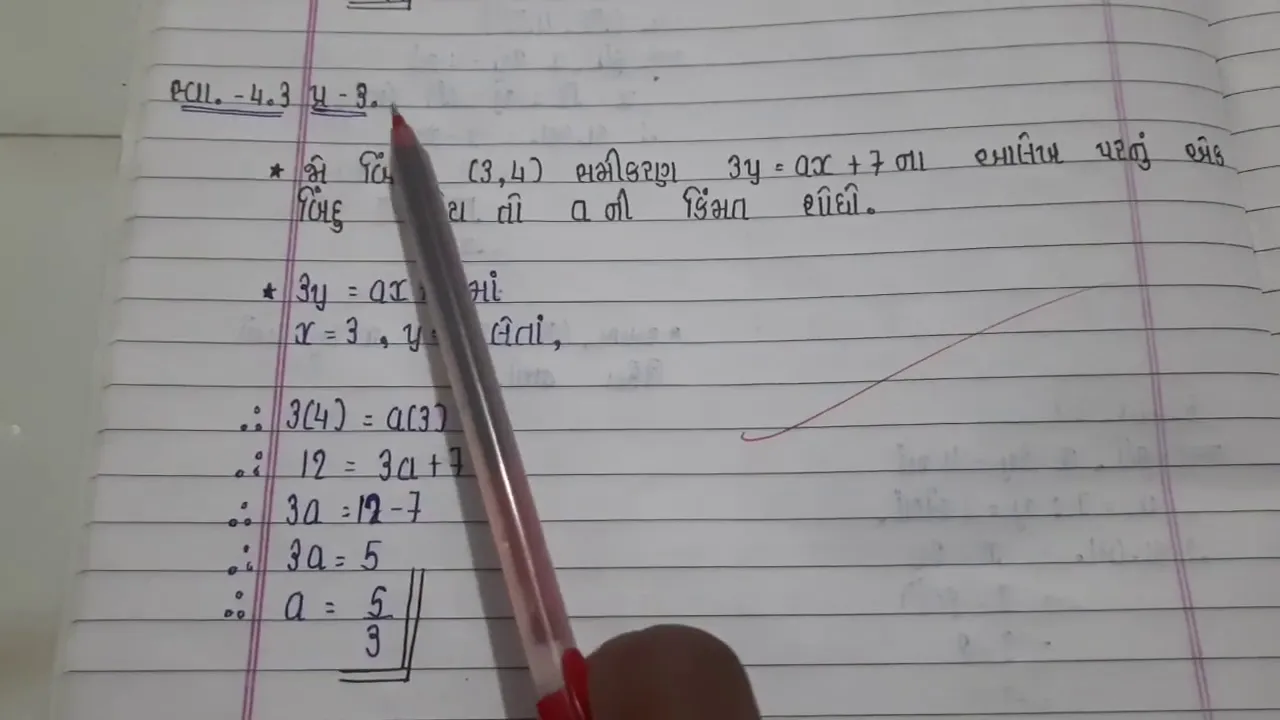 સ્વા. - 4.3 પ્ર - 3.
* જો (3,4) સમીકરણ 3y = ax + 7 ના આલેખ પરનું એક
બિંદુ તો a ની કિંમત શોધો.
* 3y = ax માં
x = 3 , y લેતાં,
∴ 3(4) = a(3)
∴ 12 = 3a + 7
∴ 3a = 12 - 7
∴ 3a = 5
∴ a = 5/3